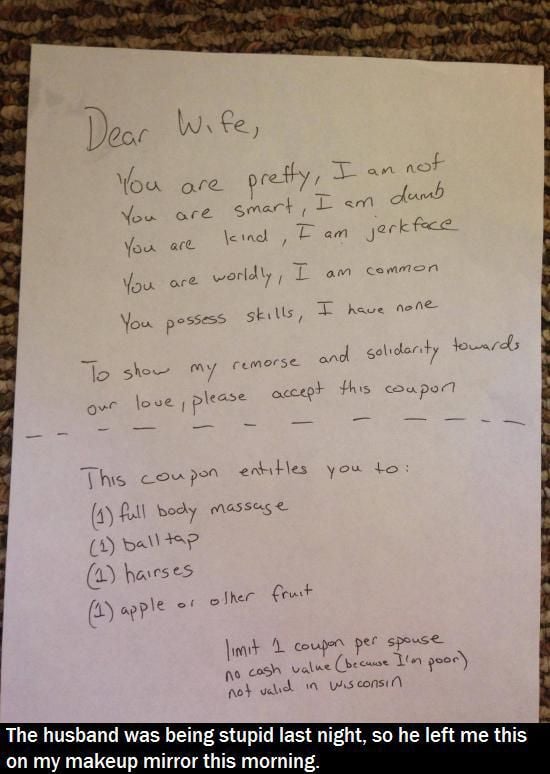 Dear Wife,
You are pretty, I am not
You are smart, I am dumb
You are kind, I am jerkface
You are worldly, I am common
You possess skills, I have none
To show my remorse and solidarity towards
our love, please accept this coupon
This coupon entitles you to:
(1) full body massage
(1) ball tap
(1) hairses
(1) apple or other fruit
limit 1 coupon per spouse
no cash value (because I'm poor)
not valid in wisconsin
The husband was being stupid last night, so he left me this
on my makeup mirror this morning.